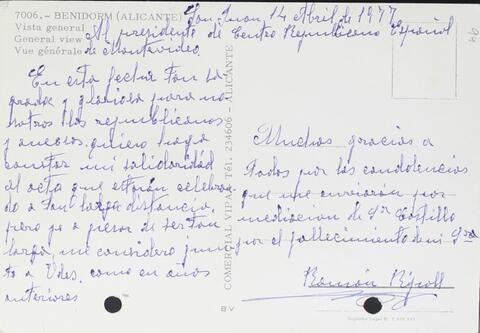 7006.- BENIDORM (ALICANTE)
Vista general
General view
Vue générale
San Juan, 14 Abril de 1977
Al presidente de Centro Republicano Español
de Montevideo.
En esta fecha tan sa-
grada y gloriosa para no-
sotros los republicanos
y ancosos, quiero haga
constar mi solidaridad
al acto que están celebran-
do a tan larga distancia,
pero yo a pesar de ser tan
larga, me considero jun-
to a Vdes. como en años
anteriores
Muchas gracias a
todos por las condolencias
que me enviarón por
mediacion de Sr Castillo
por el fallecimiento de mi Sra
Ramón Ripoll
COMERCIAL VIPA. Tél. 234606 - ALICANTE
BV
94